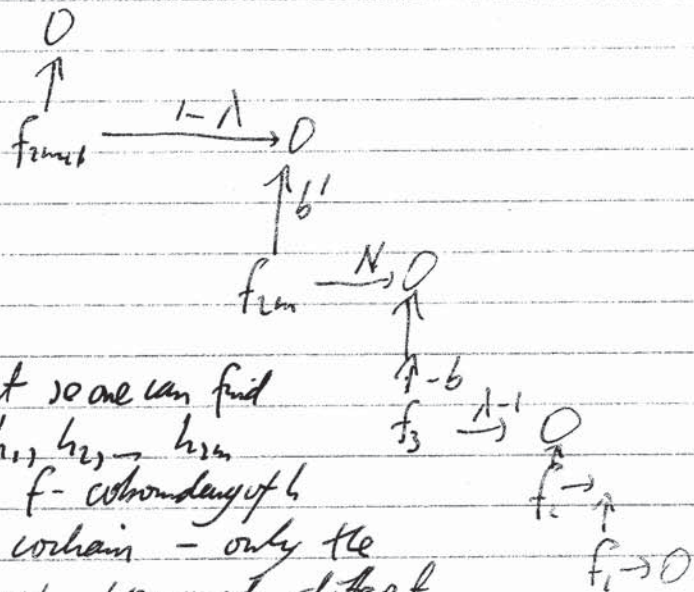 0
f_{2m+1} 1-λ 0
b'
f_{2m} N 0
-b
f_3 λ-1 0
f_2
f_1 → 0
so one can find
h_1, h_2, – h_{2m}
f - coboundary of h
cochain – only the